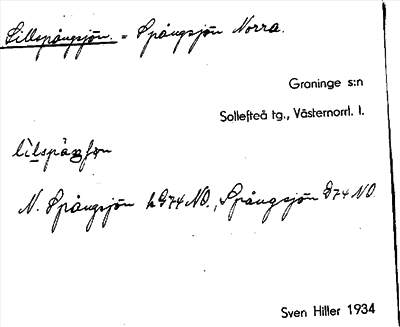 Lillspångsjön. = Spångsjön Norra.
Graninge s:n
Sollefteå tg., Västernorrl. l.
N. Spångsjön h D74 NO., Spångsjön D74 NO.
Sven Hiller 1934